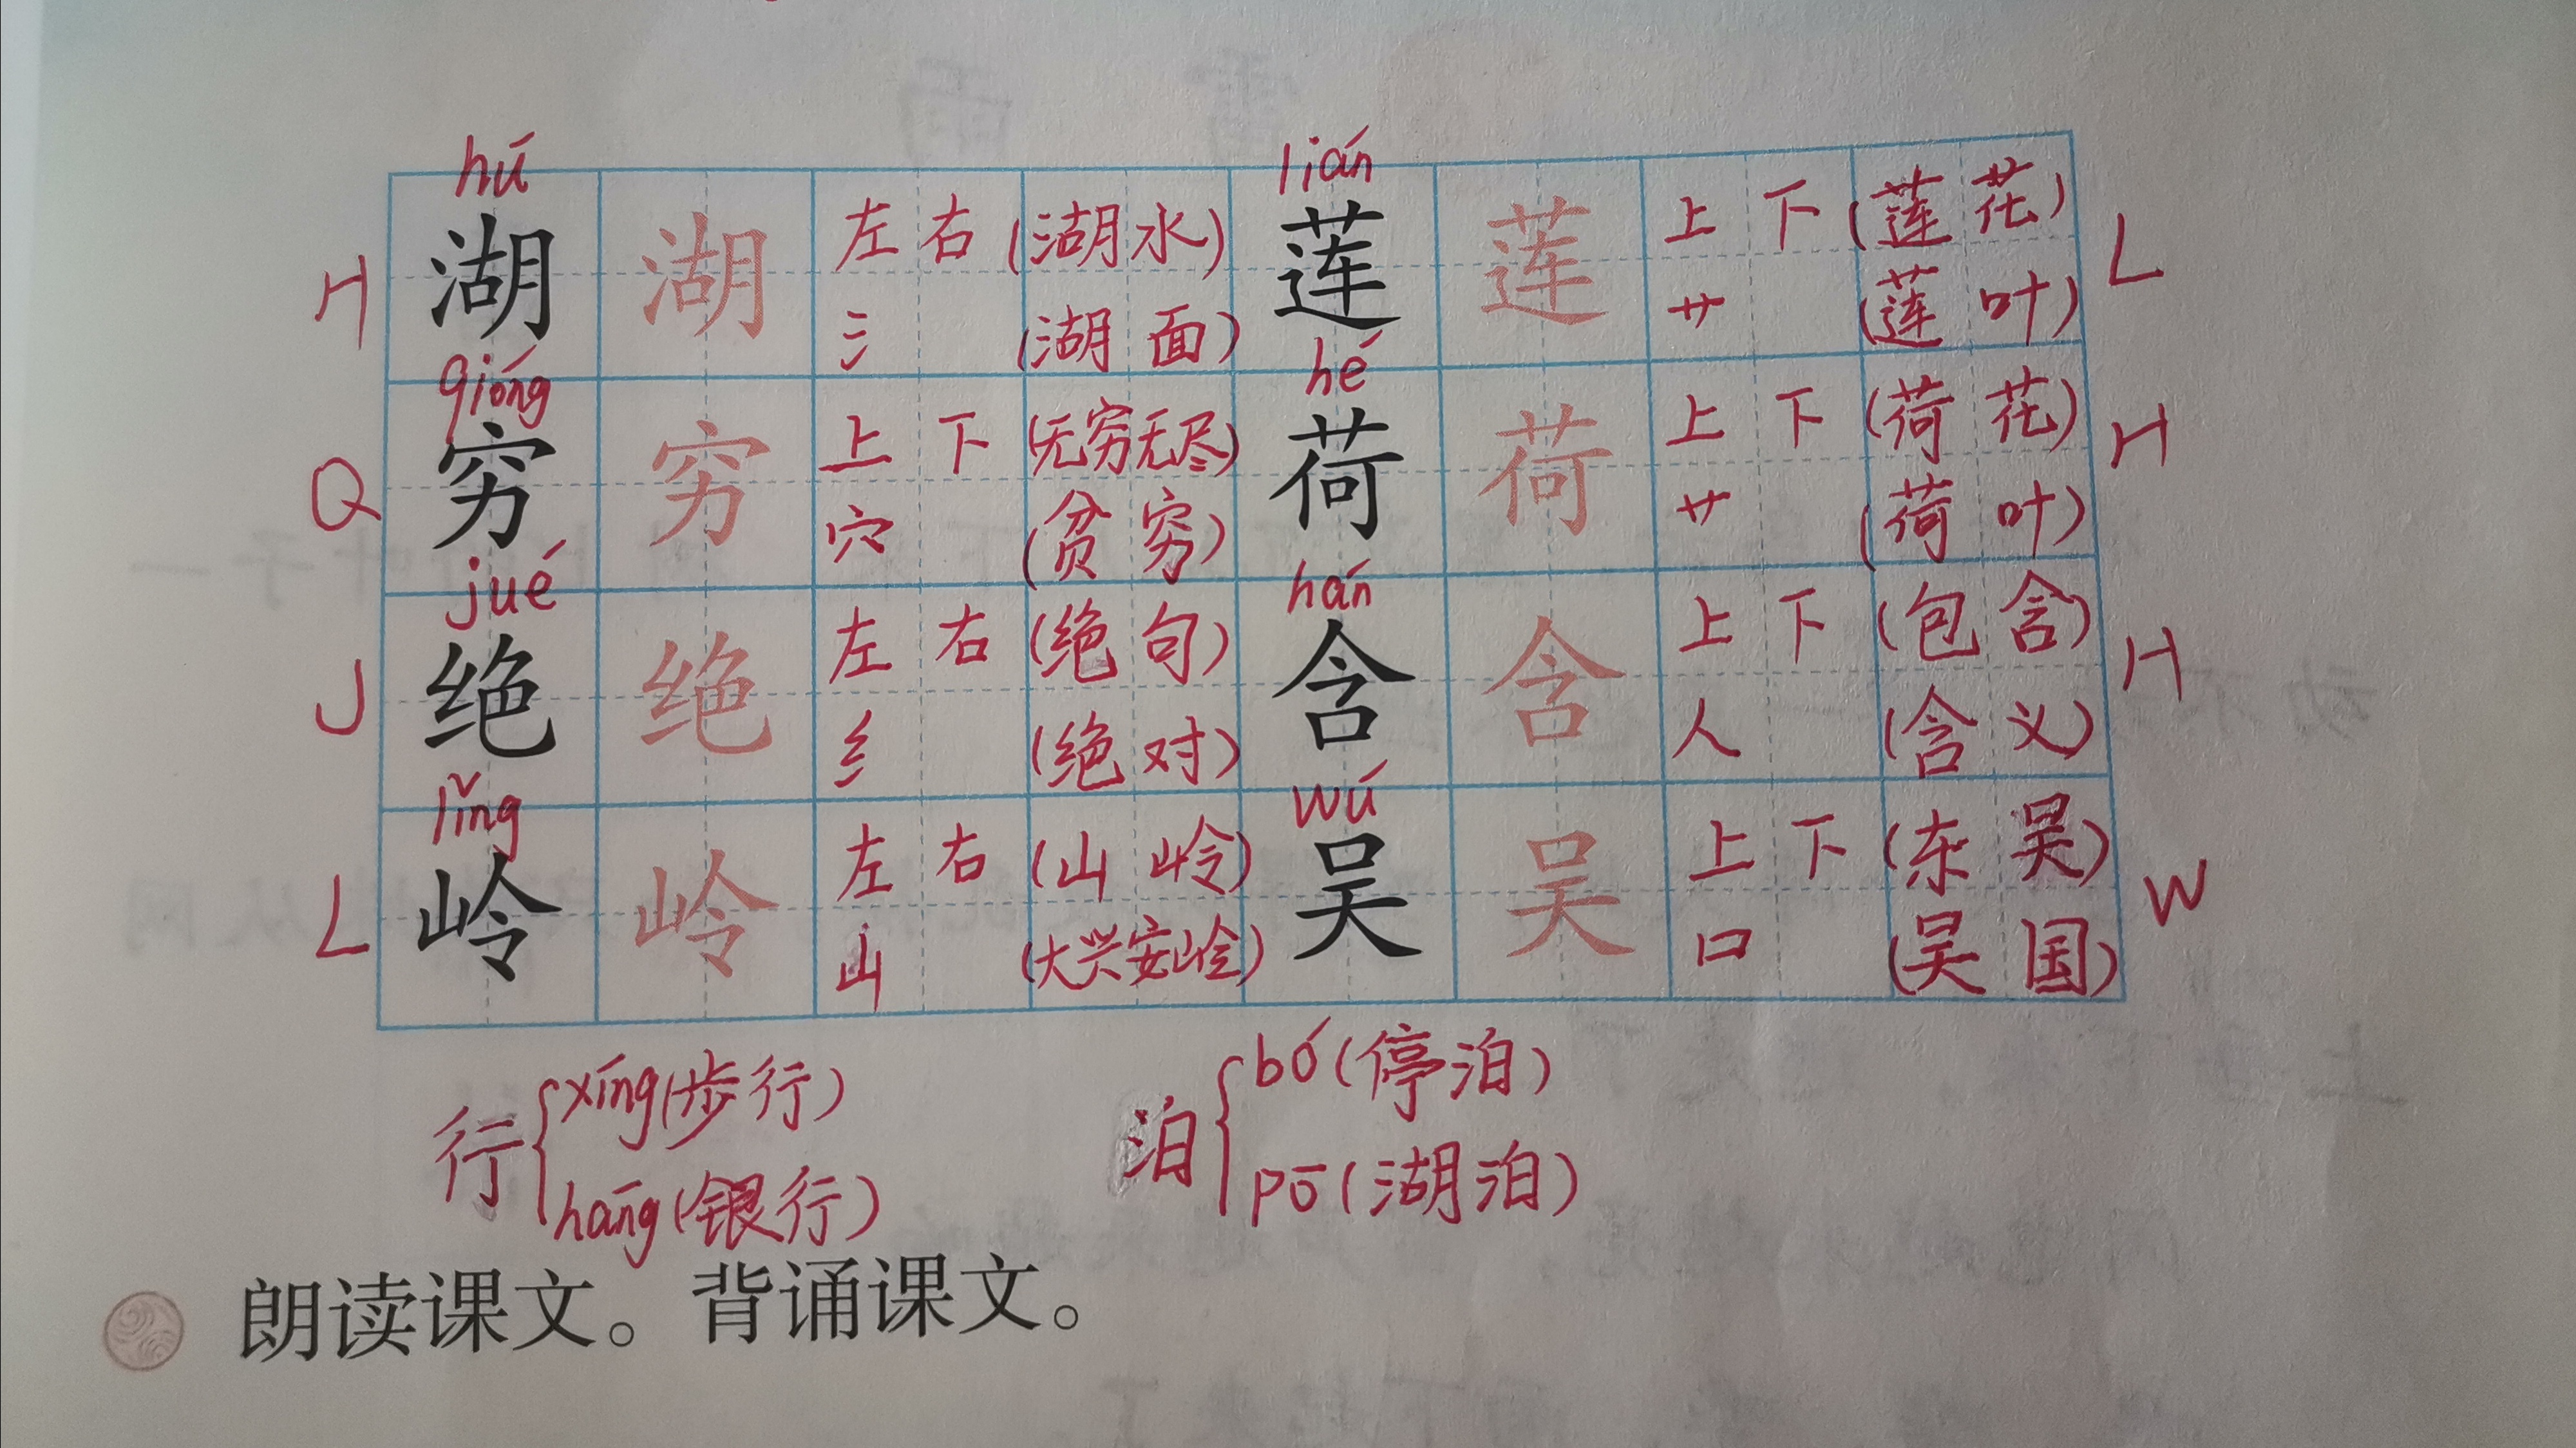 hú lián
H 湖 湖 左 右 (湖水) 莲 莲 上 下 (莲花) L
氵 (湖面) 艹 (莲叶)
qióng hé
Q 穷 穷 上 下 (无穷无尽) 荷 荷 上 下 (荷花) H
穴 (贫穷) 艹 (荷叶)
jué hán
J 绝 绝 左 右 (绝句) 含 含 上 下 (包含) H
纟 (绝对) 人 (含义)
lǐng wú
L 岭 岭 左 右 (山岭) 吴 吴 上 下 (东吴) W
山 (大兴安岭) 口 (吴国)
行 { xíng (步行) 泊 { bó (停泊)
háng (银行) pō (湖泊)
朗读课文。背诵课文。